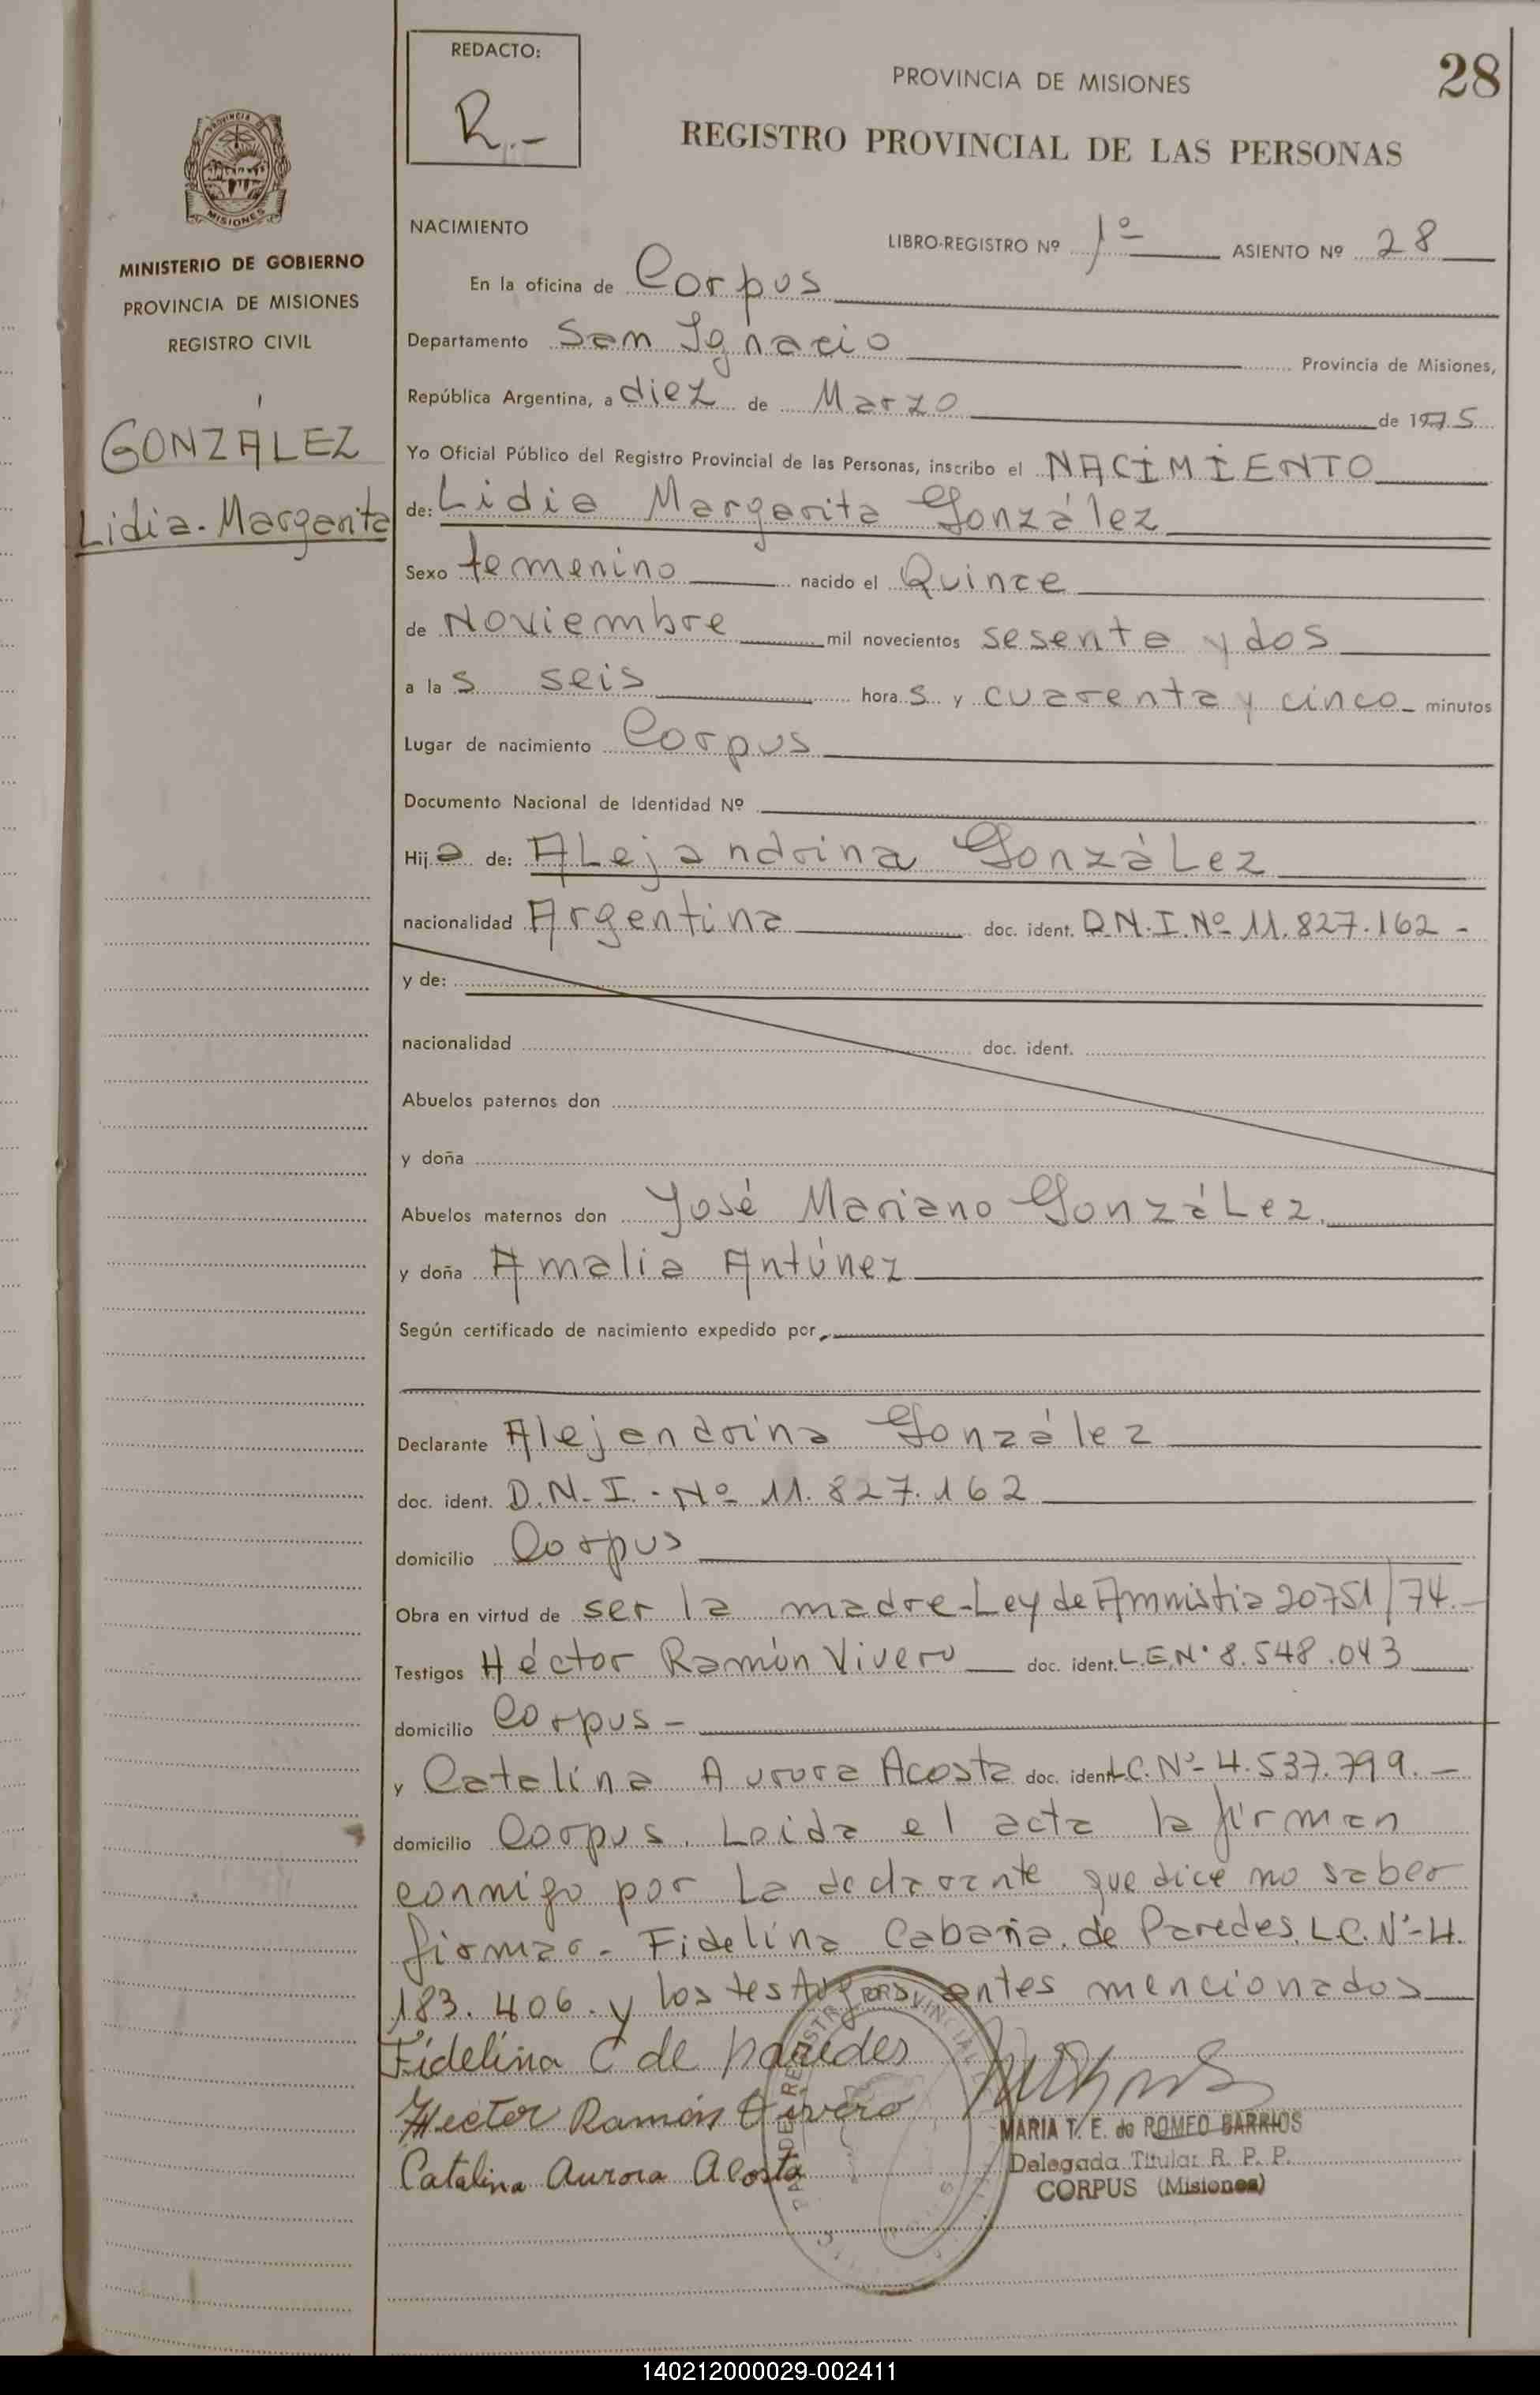 REDACTO:
R.-
PROVINCIA DE MISIONES
28
REGISTRO PROVINCIAL DE LAS PERSONAS
PROVINCIA DE
MISIONES
MINISTERIO DE GOBIERNO
PROVINCIA DE MISIONES
REGISTRO CIVIL
GONZÁLEZ
Lidia-Margarita
NACIMIENTO
LIBRO-REGISTRO Nº 1º ASIENTO Nº 28
En la oficina de Corpus
Departamento San Ignacio Provincia de Misiones,
República Argentina, a diez de Marzo de 1975
Yo Oficial Público del Registro Provincial de las Personas, inscribo el NACIMIENTO
de: Lidia Margarita González
Sexo femenino nacido el Quince
de Noviembre mil novecientos sesenta y dos
a las seis horas y cuarenta y cinco minutos
Lugar de nacimiento Corpus
Documento Nacional de Identidad Nº
Hija de: Alejandrina González
nacionalidad Argentina doc. ident. D.N.I. Nº 11.827.162 -
y de:
nacionalidad doc. ident.
Abuelos paternos don
y doña
Abuelos maternos don José Mariano González
y doña Amalia Antúnez
Según certificado de nacimiento expedido por
Declarante Alejandrina González
doc. ident. D.N.I.- Nº 11.827.162
domicilio Corpus
Obra en virtud de ser la madre-Ley de Amnistia 20751/74.-
Testigos Héctor Ramón Vivero doc. ident. L.E.Nº 8.548.043
domicilio Corpus -
y Catalina Aurora Acosta doc. ident. L.C. Nº- 4.537.799.-
domicilio Corpus. Leida el acta la firman
conmigo por la declarante que dice no saber
firmar- Fidelina Cabaña de Paredes L.C. Nº- 4.
183.406. y los testigos antes mencionados
Fidelina C de paredes
Hector Ramón Vivero
Catalina Aurora Acosta
MARIA T. E. de ROMEO BARRIOS
Delegada Titular R. P. P.
CORPUS (Misiones)
140212000029-002411